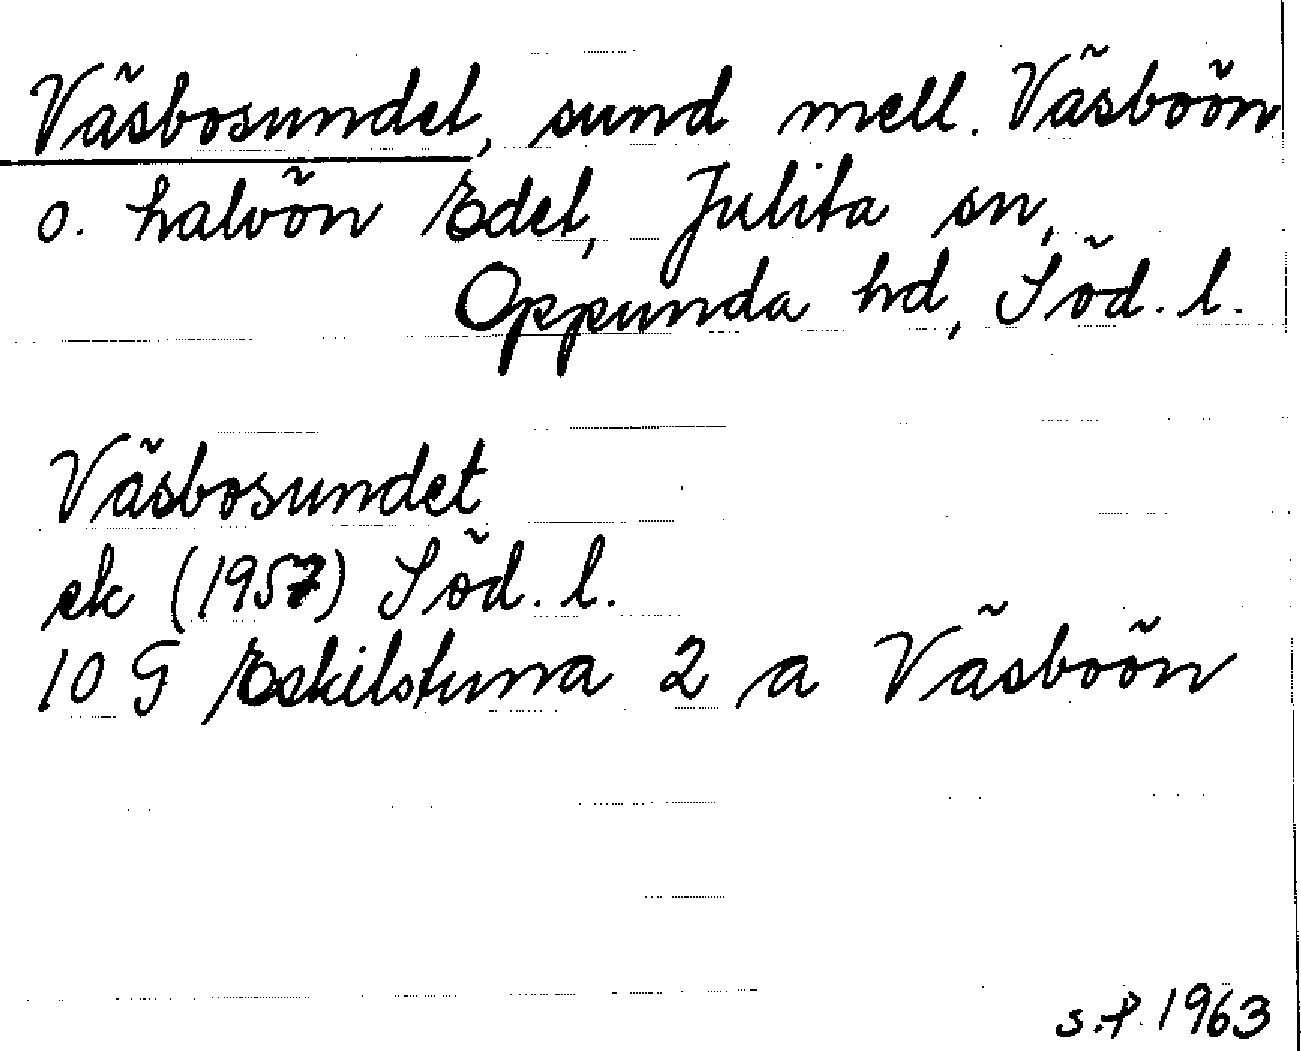 Väsbosundet, sund mell. Väsboön
o. halvön Edet, Julita sn,
Oppunda hd, Söd. l.
Väsbosundet
ek (1957) Söd. l.
10 G Eskilstuna 2 a Väsboön
s.P. 1963